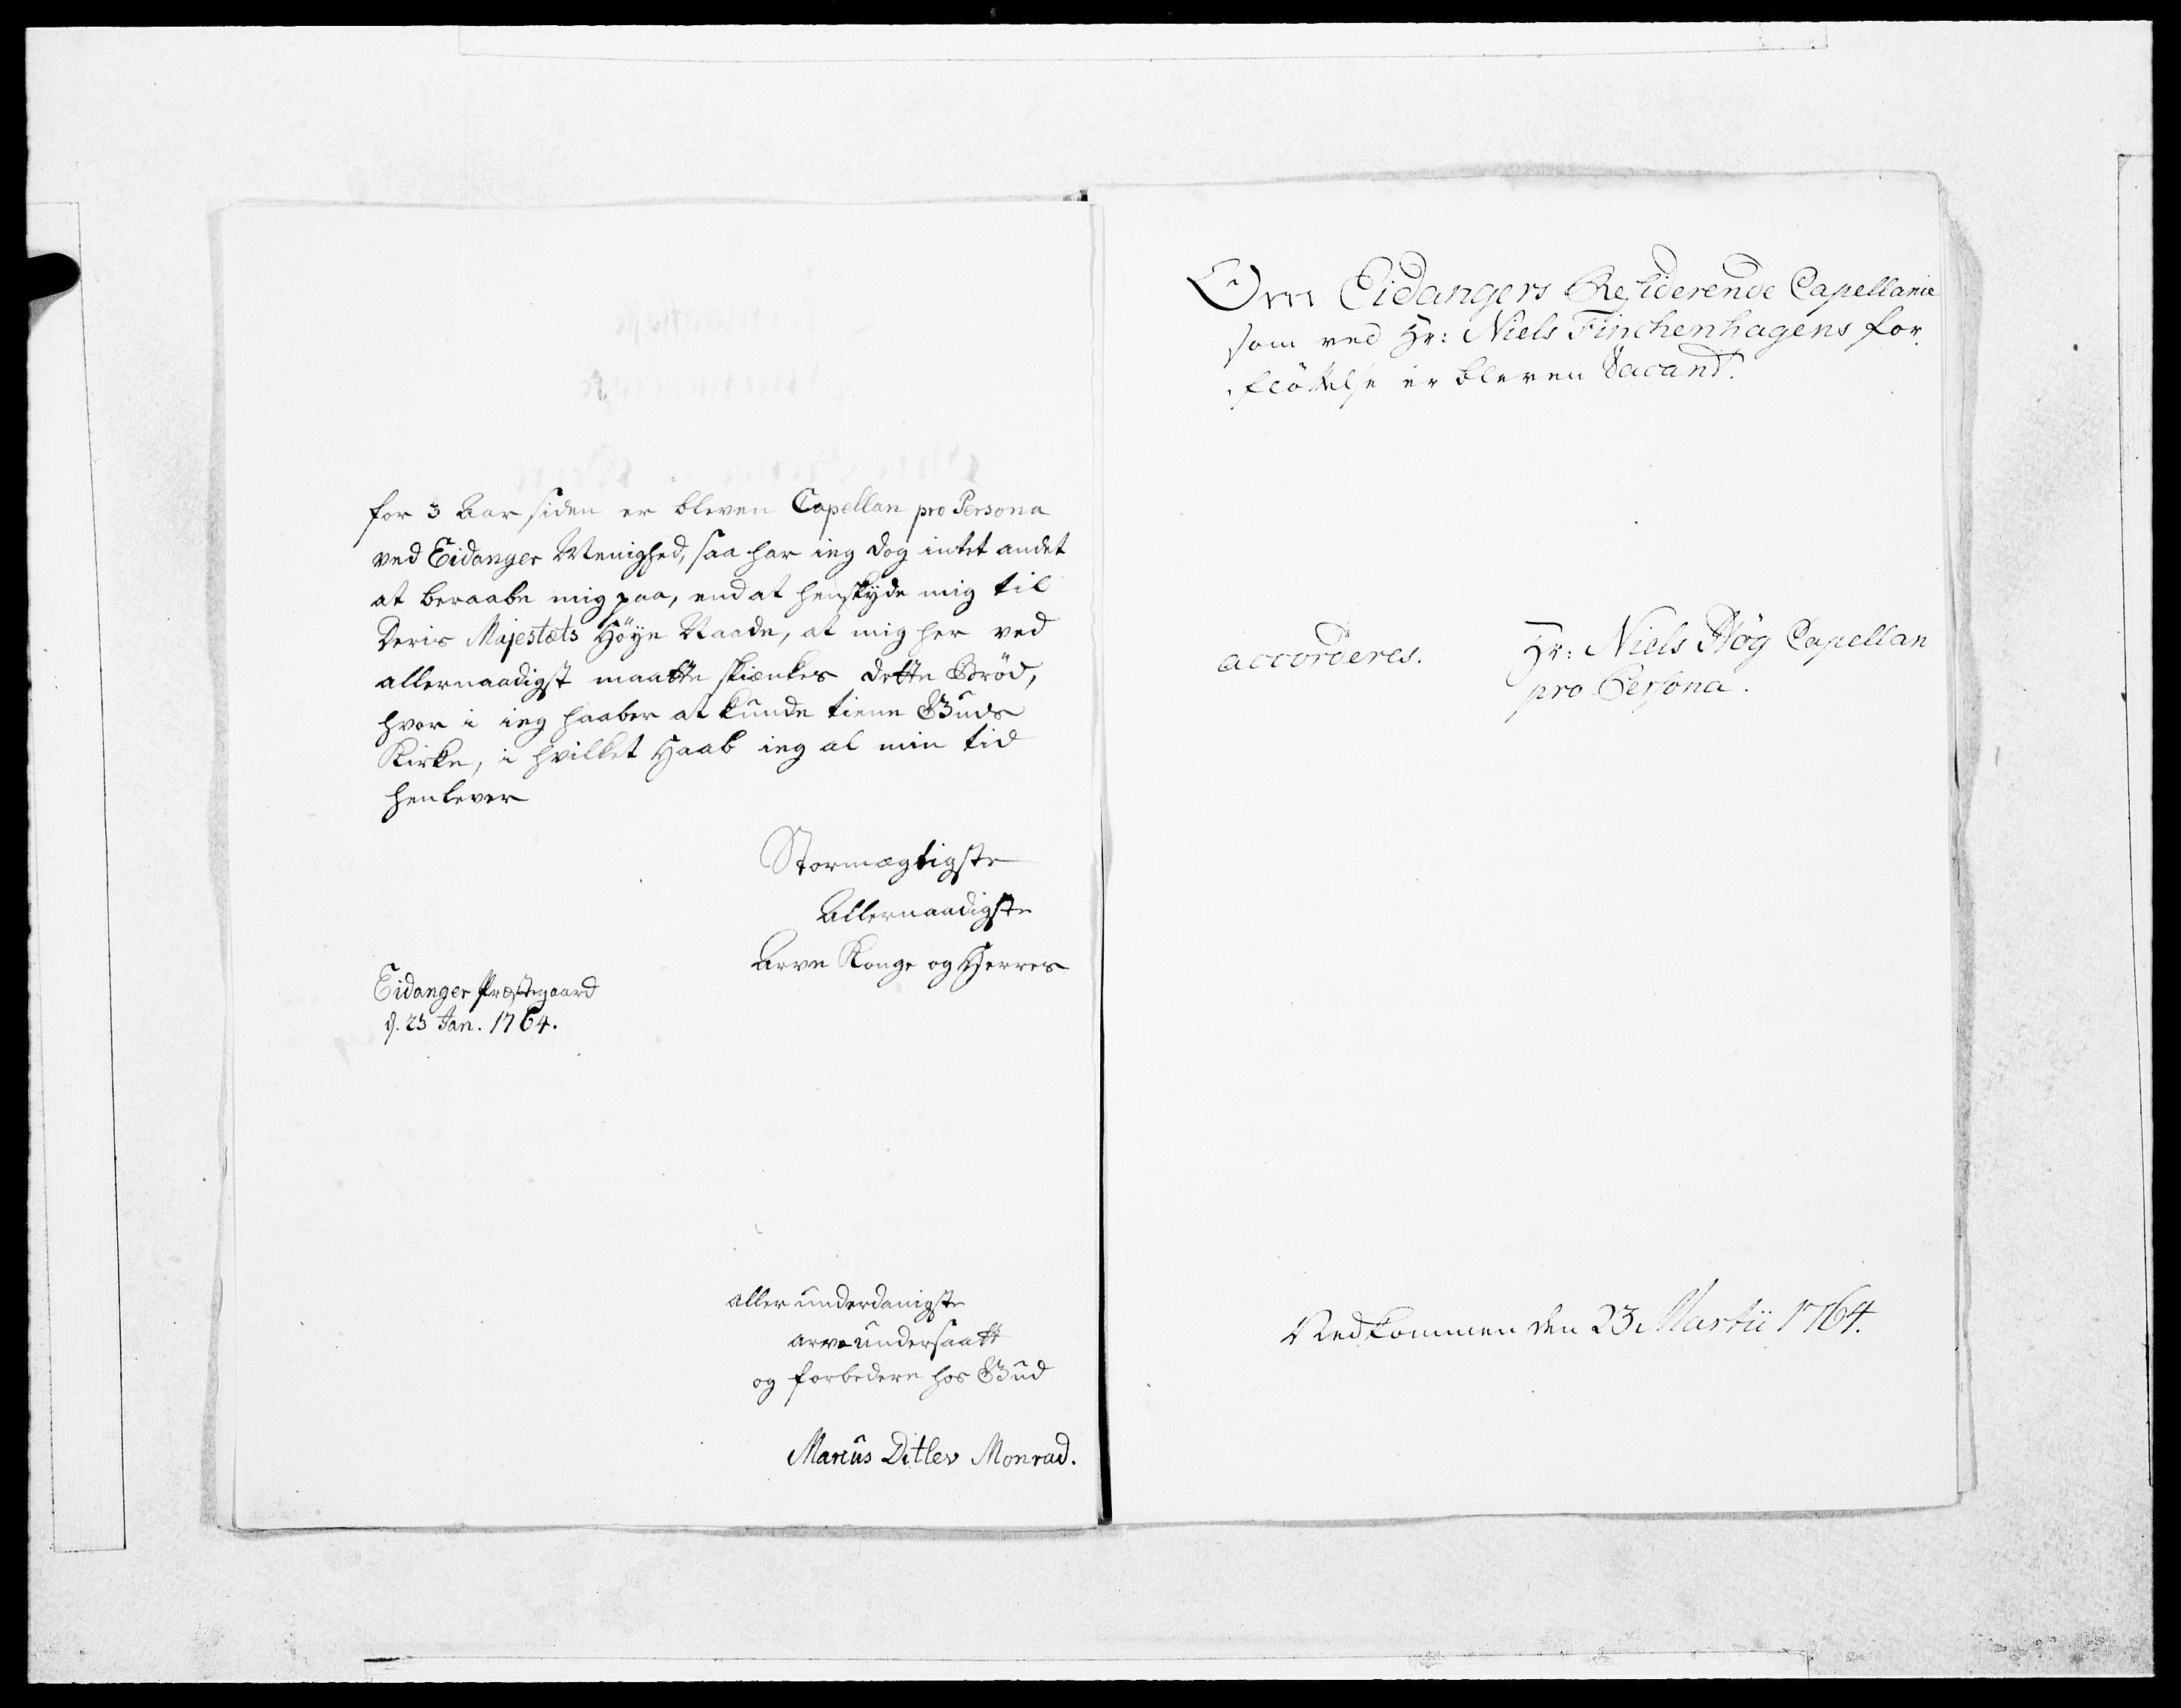 for 3 Aar siden er bleven Capellan pro Persona
ved Eidanger Menighed, saa har ieg dog intet andet
at beraabe mig paa, end at henskyde mig til
Deris Majestæts Höye Naade, at mig her ved
allernaadigst maatte skienkes dette Bröd,
hvor i ieg haaber at kunde tiene Guds
Kirke, i hvilket Haab ieg al min tid
henlever
Stormægtigste
Allernaadigste
Arve Konge og Herres
Eidanger Præstegaard
d. 23 Jan. 1764.
allerunderdanigste
arveundersaatt
og forbedere hos Gud
Marcus Ditlev Monrad.
Om Eidangers Residerende Capellanie
som ved Hr: Niels Finchenhagens for
flöttelse er bleven Vacand.
accorderes.
Hr: Niels Høg Capellan
pro Persona.
Nedkommen den 23 Martii 1764.